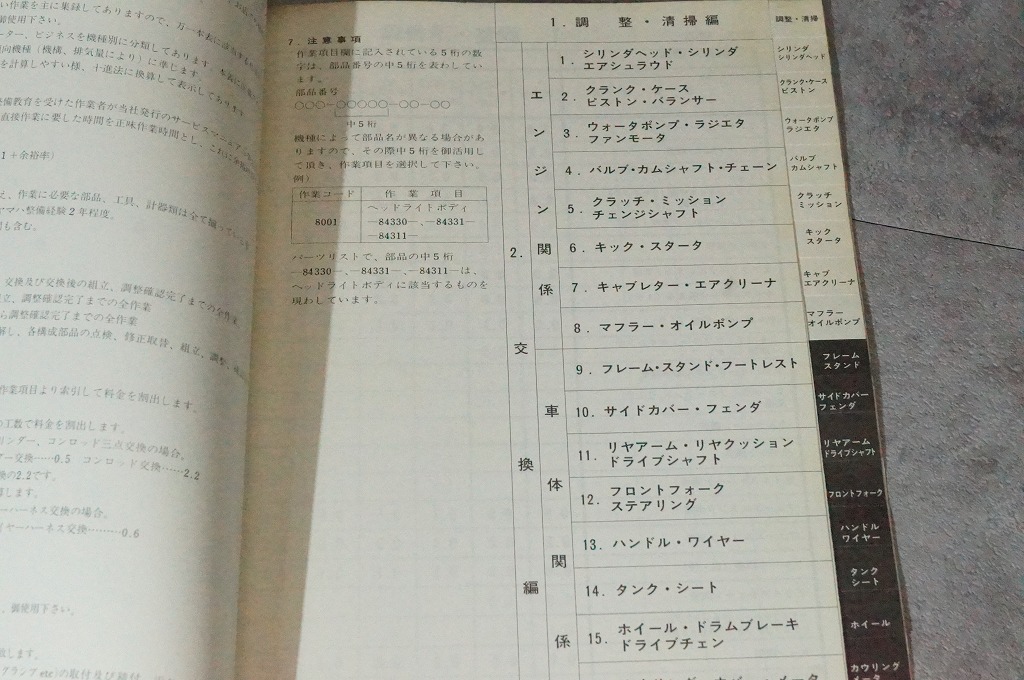 い作業を主に集録してありますので、万一本表に該当する
御使用下さい。
ーター、ビジネスを機種別に分類してあります。
向機種（機構、排気量により）に準じます。
を計算しやすい様、十進法に換算して表示してあります
整備教育を受けた作業者が当社発行のサービスマニュアル
直接作業に要した時間を正味作業時間とし、これに余裕
1＋余裕率）
え、作業に必要な部品、工具、計器類は全て揃って
ヤマハ整備経験2年程度。
間も含む。
交換及び交換後の組立、調整確認完了までの全作業
組立、調整確認完了までの全作業
ら調整確認完了までの全作業
解し、各構成部品の点検、修正取替、組立、調整、
作業項目より索引して料金を割出します。
の工数で料金を割出します。
リンダー、コンロッド三点交換の場合。
ダー交換……0.5 コンロッド交換……2.2
換の2.2です。
算します。
ーハーネス交換の場合。
イヤーハーネス交換………0.6
、御使用下さい。
致します。
グランプetc)の取付及び
7．注意事項
作業項目欄に記入されている5桁の数
字は、部品番号の中5桁を表わしてい
ます。
部品番号
○○○―○○○○○―○○―○○
中5桁
機種によって部品名が異なる場合があ
りますので、その際中5桁を御活用し
て頂き、作業項目を選択して下さい。
例）
作業コード 作業項目
8001 ヘッドライトボディ
―84330―、―84331―
―84311―
パーツリストで、部品の中5桁
―84330―、―84331―、―84311―は、
ヘッドライトボディに該当するものを
現わしています。
1．調整・清掃編
2．交換編
エンジン関係
1．シリンダヘッド・シリンダ
エアシュラウド
2．クランク・ケース
ピストン・バランサー
3．ウォータポンプ・ラジエタ
ファンモータ
4．バルブ・カムシャフト・チェーン
5．クラッチ・ミッション
チェンジシャフト
6．キック・スタータ
7．キャブレター・エアクリーナ
8．マフラー・オイルポンプ
車体関係
9．フレーム・スタンド・フートレスト
10．サイドカバー・フェンダ
11．リヤアーム・リヤクッション
ドライブシャフト
12．フロントフォーク
ステアリング
13．ハンドル・ワイヤー
14．タンク・シート
15．ホイール・ドラムブレーキ
ドライブチェン
調整・清掃
シリンダ
シリンダヘッド
クランク・ケース
ピストン
ウォータポンプ
ラジエタ
バルブ
カムシャフト
クラッチ
ミッション
キック
スタータ
キャブ
エアクリーナ
マフラー
オイルポンプ
フレーム
スタンド
サイドカバー
フェンダ
リヤアーム
ドライブシャフト
フロントフォーク
ハンドル
ワイヤー
タンク
シート
ホイール
カウリング
メータ